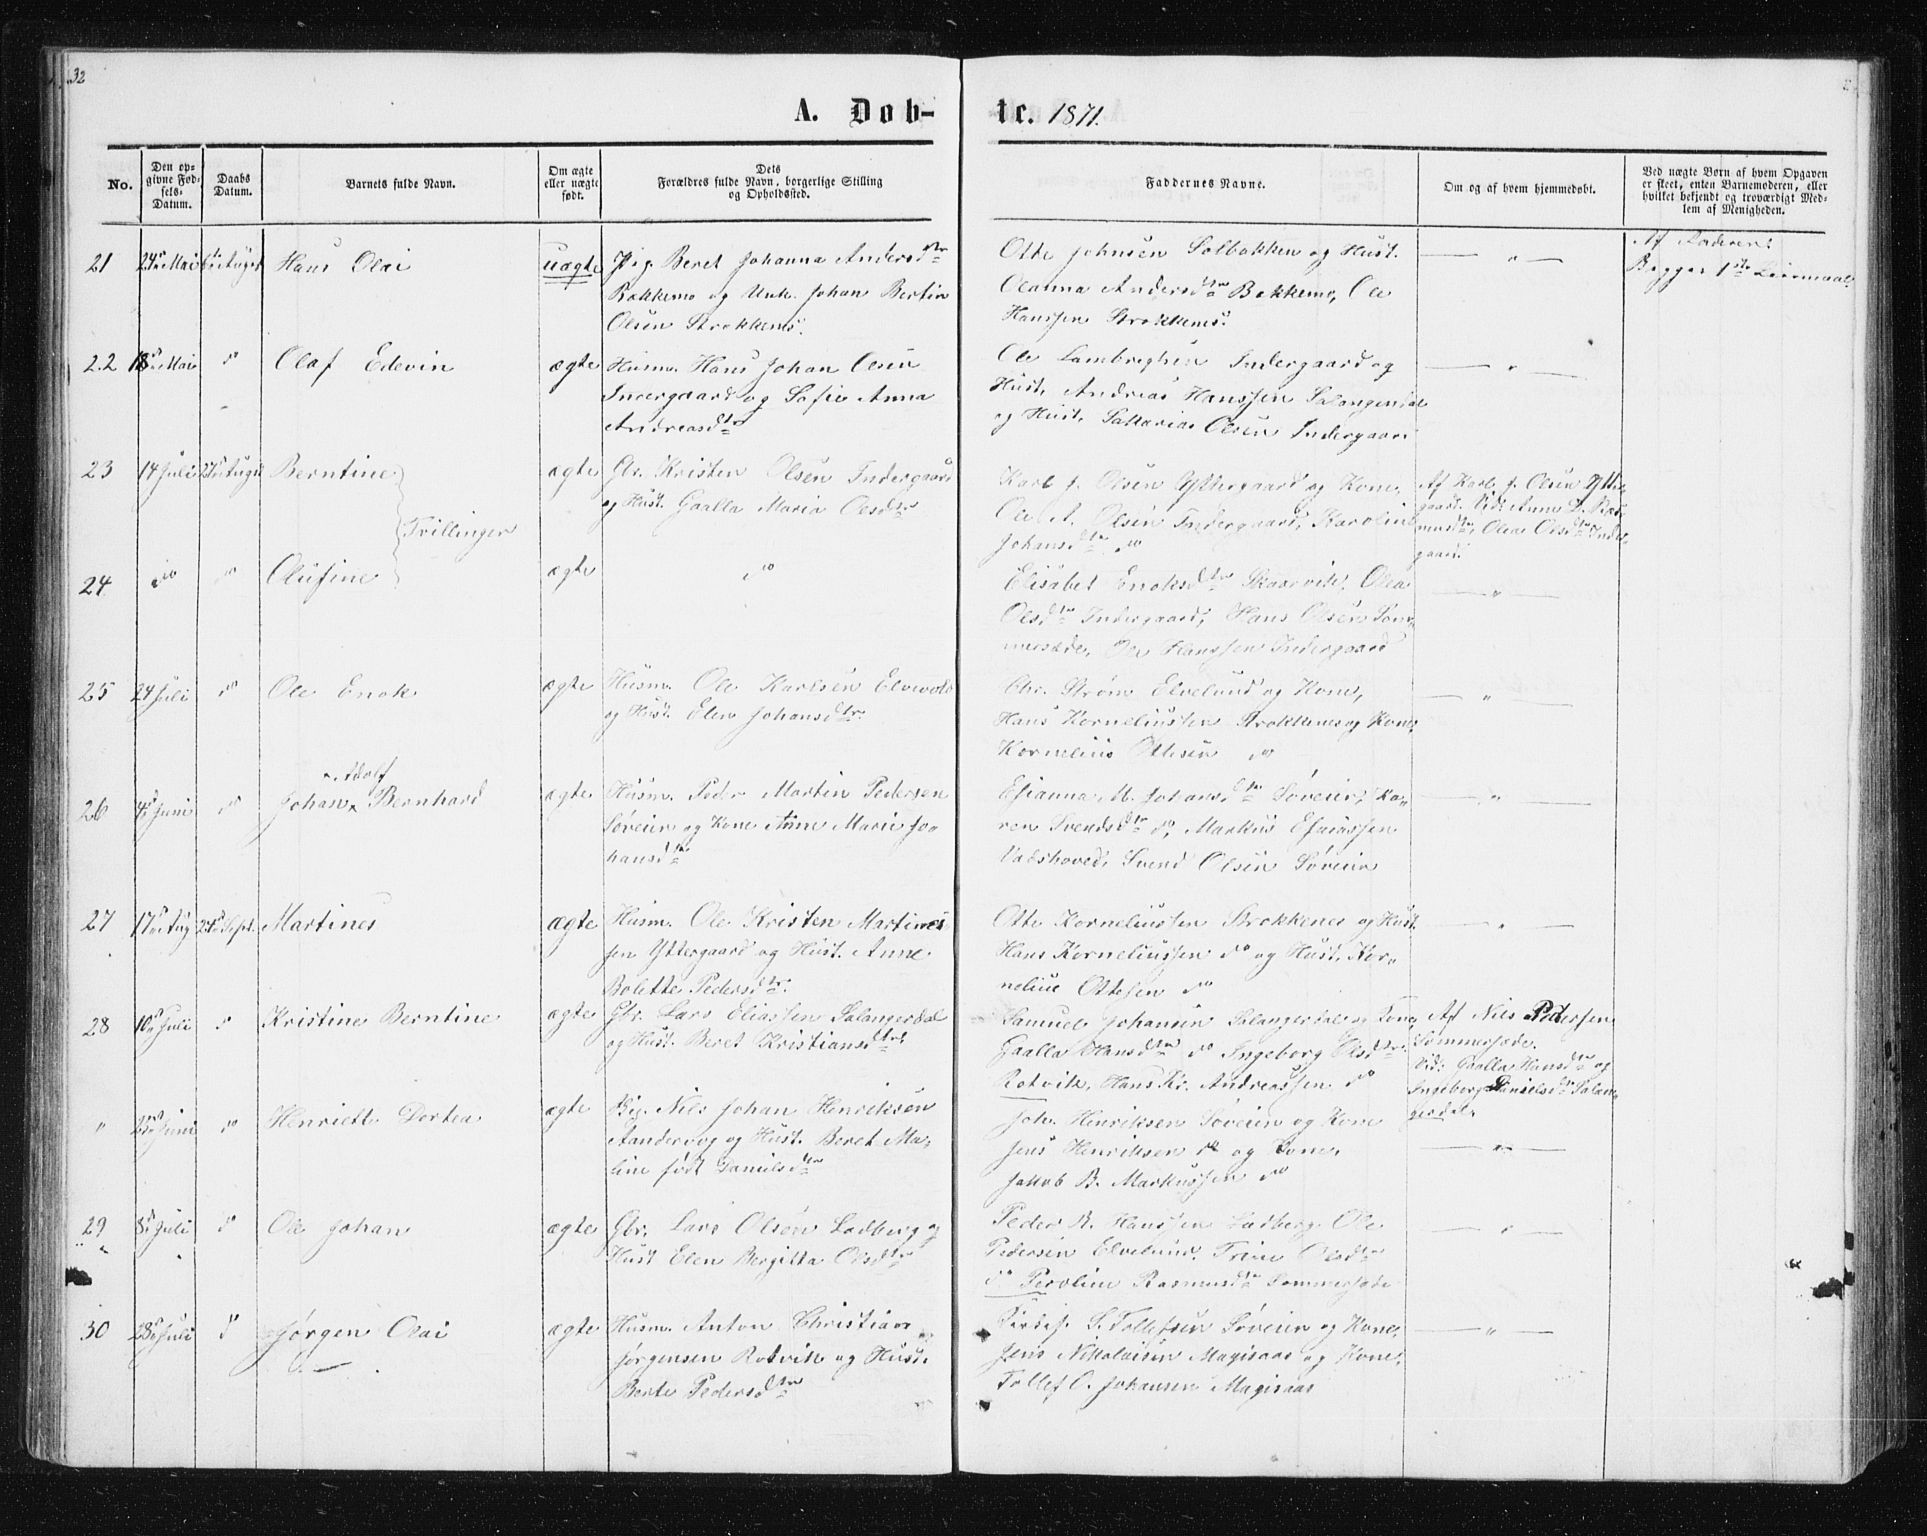 32
A. Døb-
te. 1871.
No.
Den op-
givne Fød-
sels-
Datum.
Daabs
Datum.
Barnets fulde Navn.
Om ægte
eller uægte
født.
Dets
Forældres fulde Navn, borgerlige Stilling
og Opholdssted.
Faddernes Navne.
Om og af hvem hjemmedøbt.
Ved uægte Børn af hvem Opgaven
er skeet, enten Barnemoderen, eller
hvilket bekjendt og troværdigt Med-
lem af Menigheden.
21 24 Mai 6 August Hans Olai uægte Pig. Beret Johanna Andersdtr
Bakkemo og Unk. Johan Bertin
Olsen Strokkenes.
Otte Johnsen Solbakken og Hust.
Olanna Andersdtr Bakkemo, Ole
Hanssen Strokkenes.
— " —
Af Faderen.
Begges 1ste Leiermaal.
22 18 Mai do Olaf Edevin ægte Husm. Hans Johan Olsen
Indergaard og Sofie Anna
Andreasdtr
Ole Lambregtsen Indergaard og
Hust. Andreas Hanssen Salangerdal
og Hust. Sakarias Olsen Indergaard
— " —
23 14 Juli 27 August Berntine ægte Gbr. Kristen Olsen Indergaard
og Hust. Gaalla Maria Olsdtr
Tvillinger
Karl J. Olsen Yttergaard og Kone,
Ole A. Olsen Indergaard, Karolin
Johansdtr do
Af Karl J. Olsen Ytter-
gaard. Vid: Anne D. Ras-
musdtr, Olea Olsdtr Inder-
gaard.
24 do do Olufine ægte do
Elisabet Enoksdtr Skaarvik. Olea
Olsdtr Indergaard, Hans Olsen Som-
mersæde, Ole Hanssen Indergaard
— " —
25 24 Juli do Ole Enok ægte Husm. Ole Karlsen Elvevold
og Hust. Elen Johansdtr.
Chr. Strøm Elvelund og Kone,
Hans Korneliussen Strokkenes og Kone,
Kornelius Ottesen do
— " —
26 4 Juni do Johan Adolf Bernhard ægte Husm. Peder Martin Pedersen
Søveien og Kone Anne Marie Jo-
hansdtr
Esianna M. Johansdtr Søveien, Ka-
ren Svendsdtr do, Markus Esaiassen
Vadshoved, Svend Olsen Søveien
— " —
27 17 Aug 24 Sept. Martines ægte Husm. Ole Kristen Martines-
sen Yttergaard og Hust. Anne
Bolette Pedersdtr.
Otte Korneliussen Strokkenes og Hust.
Hans Korneliussen do og Hust. Kor-
nelius Ottesen do
— " —
28 10 Juli do Kristine Berntine ægte Gbr. Lars Eliassen Salangerdal
og Hust. Beret Kristiansdtr
Samuel Johansen Salangerdal og Kone,
Gaalla Hansdtr do Ingeborg Olsdtr
Rotvik, Hans Kr. Andreassen do
Af Nils Pedersen
Sommersæde.
Vid: Gaalla Hansdtr og
Ingeborg Danielsdtr Salan-
gerdal.
" 25 Juni do Henriette Dortea ægte Nils Johan Henriksen
og Hust. Beret Ma-
line født Danielsdtr
Joh. Henriksen Søveien og Kone
Jens Henriksen do og Kone,
Jakob B. Markussen do
— " —
29 8 Juli do Ole Johan ægte Gbr. Lars Olsen Ladberg og
Hust Elen Bergitta Olsdtr
Peder R. Hanssen Ladberg, Ole
Pedersen Elvelund, Trine Olsdtr
do Peroline Rasmusdtr Sommersæde
— " —
30 28 Juli do Jørgen Olai ægte Husm. Anton Christian
Jørgensen Rotvik og Hust.
Berte Pedersdtr
S. Tollefsen Søveien og Kone,
Jens Nikolaisen Magisaas og Kone,
Tollef O. Johansen Magisaas
— " —